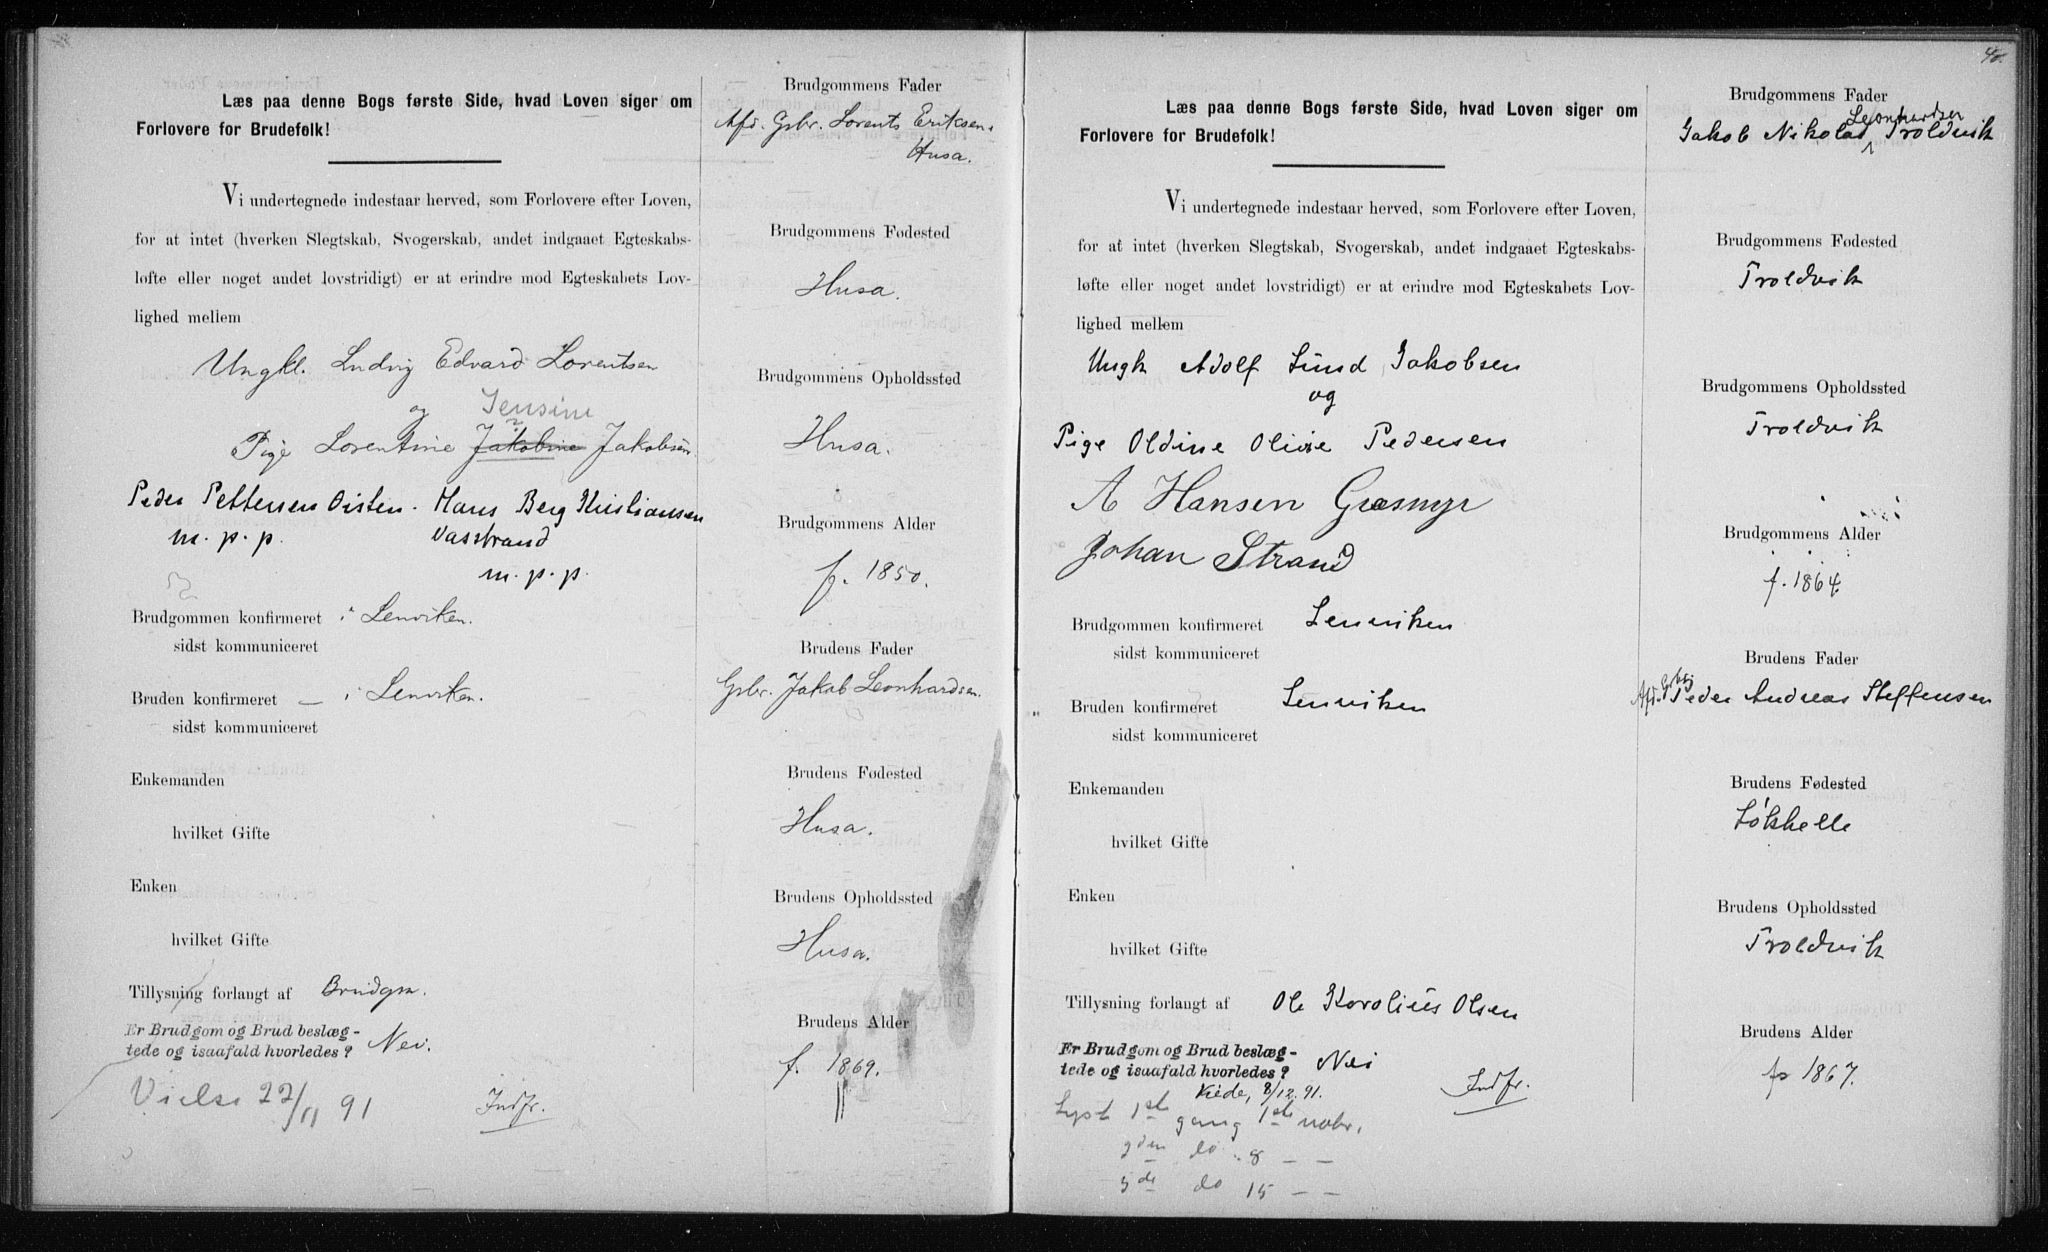 Læs paa denne Bogs første Side, hvad Loven siger om
Forlovere for Brudefolk!
Vi undertegnede indestaar herved, som Forlovere efter Loven,
for at intet (hverken Slegtskab, Svogerskab, andet indgaaet Egteskabs-
løfte eller noget andet lovstridigt) er at erindre mod Egteskabets Lov-
lighed mellem
Ungkl. Ludvig Edvard Lorentsen
og Jensine
Pige Lorentine Jakobine Jakobsen.
Peder Pettersen Oisten. Hans Berg Kristiansen
m. p. p. Vasstrand
m. p. p.
Brudgommen konfirmeret i Lenviken.
sidst kommuniceret
Bruden konfirmeret — i Lenviken.
sidst kommuniceret
Enkemanden
hvilket Gifte
Enken
hvilket Gifte
Tillysning forlangt af Brudgm.
Er Brudgom og Brud beslæg-
tede og isaafald hvorledes? Nei.
Vielse 22/11 91 Indfr.
Brudgommens Fader
Afd. Gbr. Lorents Eriksen.
Husa.
Brudgommens Fødested
Husa.
Brudgommens Opholdssted
Husa.
Brudgommens Alder
f. 1850.
Brudens Fader
Gbr. Jakob Leonhardsen.
Brudens Fødested
Husa.
Brudens Opholdssted
Husa.
Brudens Alder
f. 1869.
40.
Læs paa denne Bogs første Side, hvad Loven siger om
Forlovere for Brudefolk!
Vi undertegnede indestaar herved, som Forlovere efter Loven,
for at intet (hverken Slegtskab, Svogerskab, andet indgaaet Egteskabs-
løfte eller noget andet lovstridigt) er at erindre mod Egteskabets Lov-
lighed mellem
Ungk Adolf Lund Jakobsen
og
Pige Oldine Olivie Pedersen
A Hansen Græsmyr
Johan Strand
Brudgommen konfirmeret Lenviken
sidst kommuniceret
Bruden konfirmeret Lenviken
sidst kommuniceret
Enkemanden
hvilket Gifte
Enken
hvilket Gifte
Tillysning forlangt af Ole Karolius Olsen
Er Brudgom og Brud beslæg-
tede og isaafald hvorledes? Nei
Viede, 8/12. 91. Indfr.
Lyst 1ste gang 1ste novbr.
2den do 8 — —
3de do 15 — —
Brudgommens Fader
Leonhardsen
Jakob Nikolai Troldvik
Brudgommens Fødested
Troldvik
Brudgommens Opholdssted
Troldvik
Brudgommens Alder
f. 1864.
Brudens Fader
Afd. Peder Andreas Steffensen
Brudens Fødested
Løkhelle
Brudens Opholdssted
Troldvik
Brudens Alder
f. 1867.